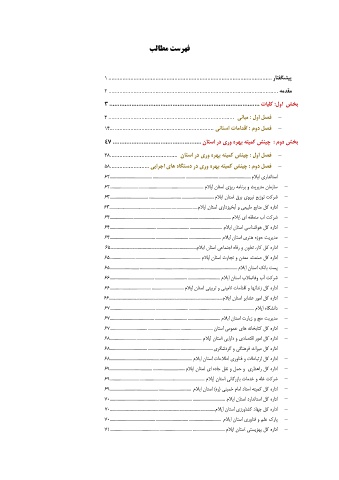 فهرست مطالب
پیشگفتار ........ ۱
مقدمه ........ ۲
بخش اول: کلیات ........ ۳
– فصل اول : مبانی ........ ۴
– فصل دوم : اقدامات استانی ........ ۱۴
بخش دوم: چینش کمیته بهره وری در استان ........ ۴۷
– فصل اول : چینش کمیته بهره وری در استان ........ ۴۸
– فصل دوم : چینش کمیته بهره وری در دستگاه های اجرایی ........ ۵۸
استانداری ایلام ........ ۶۲
– سازمان مدیریت و برنامه ریزی استان ایلام ........ ۶۳
– شرکت توزیع نیروی برق استان ایلام ........ ۶۳
– اداره کل منابع طبیعی و آبخیزداری استان ایلام ........ ۶۳
– شرکت آب منطقه ای ایلام ........ ۶۴
– اداره کل هواشناسی استان ایلام ........ ۶۴
– مدیریت حوزه هنری استان ایلام ........ ۶۴
– اداره کل کار، تعاون و رفاه اجتماعی استان ایلام ........ ۶۵
– اداره کل صنعت، معدن و تجارت استان ایلام ........ ۶۵
– پست بانک استان ایلام ........ ۶۵
– شرکت آب وفاضلاب استان ایلام ........ ۶۶
– اداره کل زندانها و اقدامات تامینی و تربیتی استان ایلام ........ ۶۶
– اداره کل امور عشایر استان ایلام ........ ۶۶
– دانشگاه ایلام ........ ۶۷
– مدیریت حج و زیارت استان ایلام ........ ۶۷
– اداره کل کتابخانه های عمومی استان ........ ۶۷
– اداره کل امور اقتصادی و دارایی استان ایلام ........ ۶۸
– اداره کل میراث فرهنگی و گردشگری ........ ۶۸
– اداره کل ارتباطات و فناوری اطلاعات استان ایلام ........ ۶۸
– اداره کل راهداری و حمل و نقل جاده ای استان ایلام ........ ۶۹
– شرکت غله و خدمات بازرگانی استان ایلام ........ ۶۹
– اداره کل کمیته امداد امام خمینی (ره) استان ایلام ........ ۶۹
– اداره کل استاندارد استان ایلام ........ ۷۰
– اداره کل جهاد کشاورزی استان ایلام ........ ۷۰
– پارک علم و فناوری استان ایلام ........ ۷۰
– اداره کل بهزیستی استان ایلام ........ ۷۱